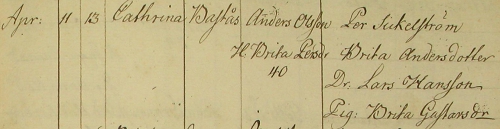 Apr: 11 13 Cathrina Bastås Anders Olsson Per Sikelström
H Brita Persdr Brita Andersdotter
40 Dr. Lars Hansson
Pig: Brita Gustafsdr